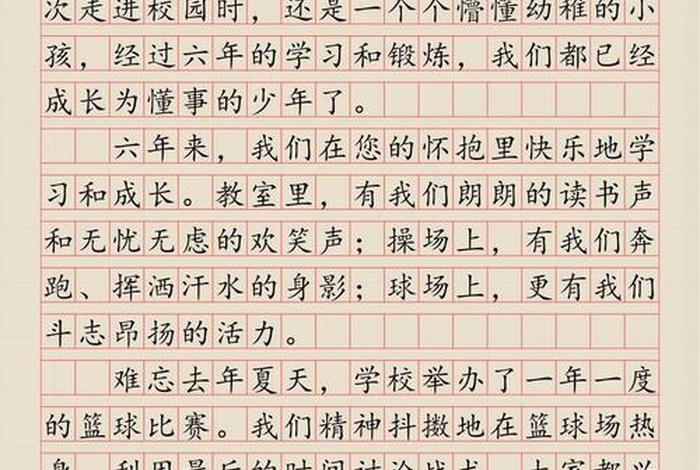 次走进校园时，还是一个个懵懂幼稚的小
孩，经过六年的学习和锻炼，我们都已经
成长为懂事的少年了。
六年来，我们在您的怀抱里快乐地学
习和成长。教室里，有我们朗朗的读书声
和无忧无虑的欢笑声；操场上，有我们奔
跑、挥洒汗水的身影；球场上，更有我们
斗志昂扬的活力。
难忘去年夏天，学校举办了一年一度
的篮球比赛。我们精神抖擞地在篮球场热
身，利用最后的时间讨论战术，大家都兴